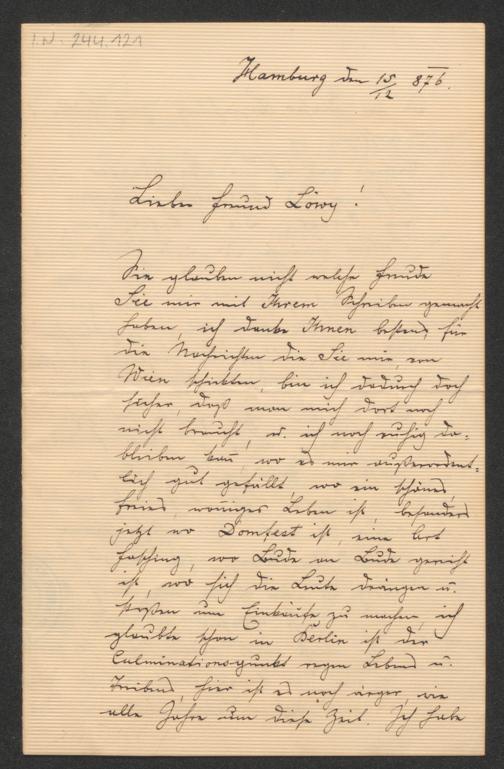 I.N. 244.121
Hamburg den 15/12 876.
Lieber Freund Löwy!
Sie glauben nicht welche Freude
Sie mir mit Ihrem Schreiben gemacht
haben, ich danke Ihnen bestens für
die Nachrichten die Sie mir von
Wien schickten, bin ich dadurch doch
sicher, daß man mich dort noch
nicht braucht, u. ich noch ruhig da-
bleiben kann, wo es mir außerordent-
lich gut gefällt, wo ein schönes,
freies, Leben ist, besonders
jetzt wo Domfest ist, eine Art
Fasching, wo Bude an Bude gereiht
ist, wo sich die Leute drängen u.
stoßen um Einkäufe zu machen, ich
glaubte schon in Berlin ist der
Culminationspunkt regen Lebens u.
Treibens, hier ist es noch ärger, wie
alle Jahre um diese Zeit. Ich habe